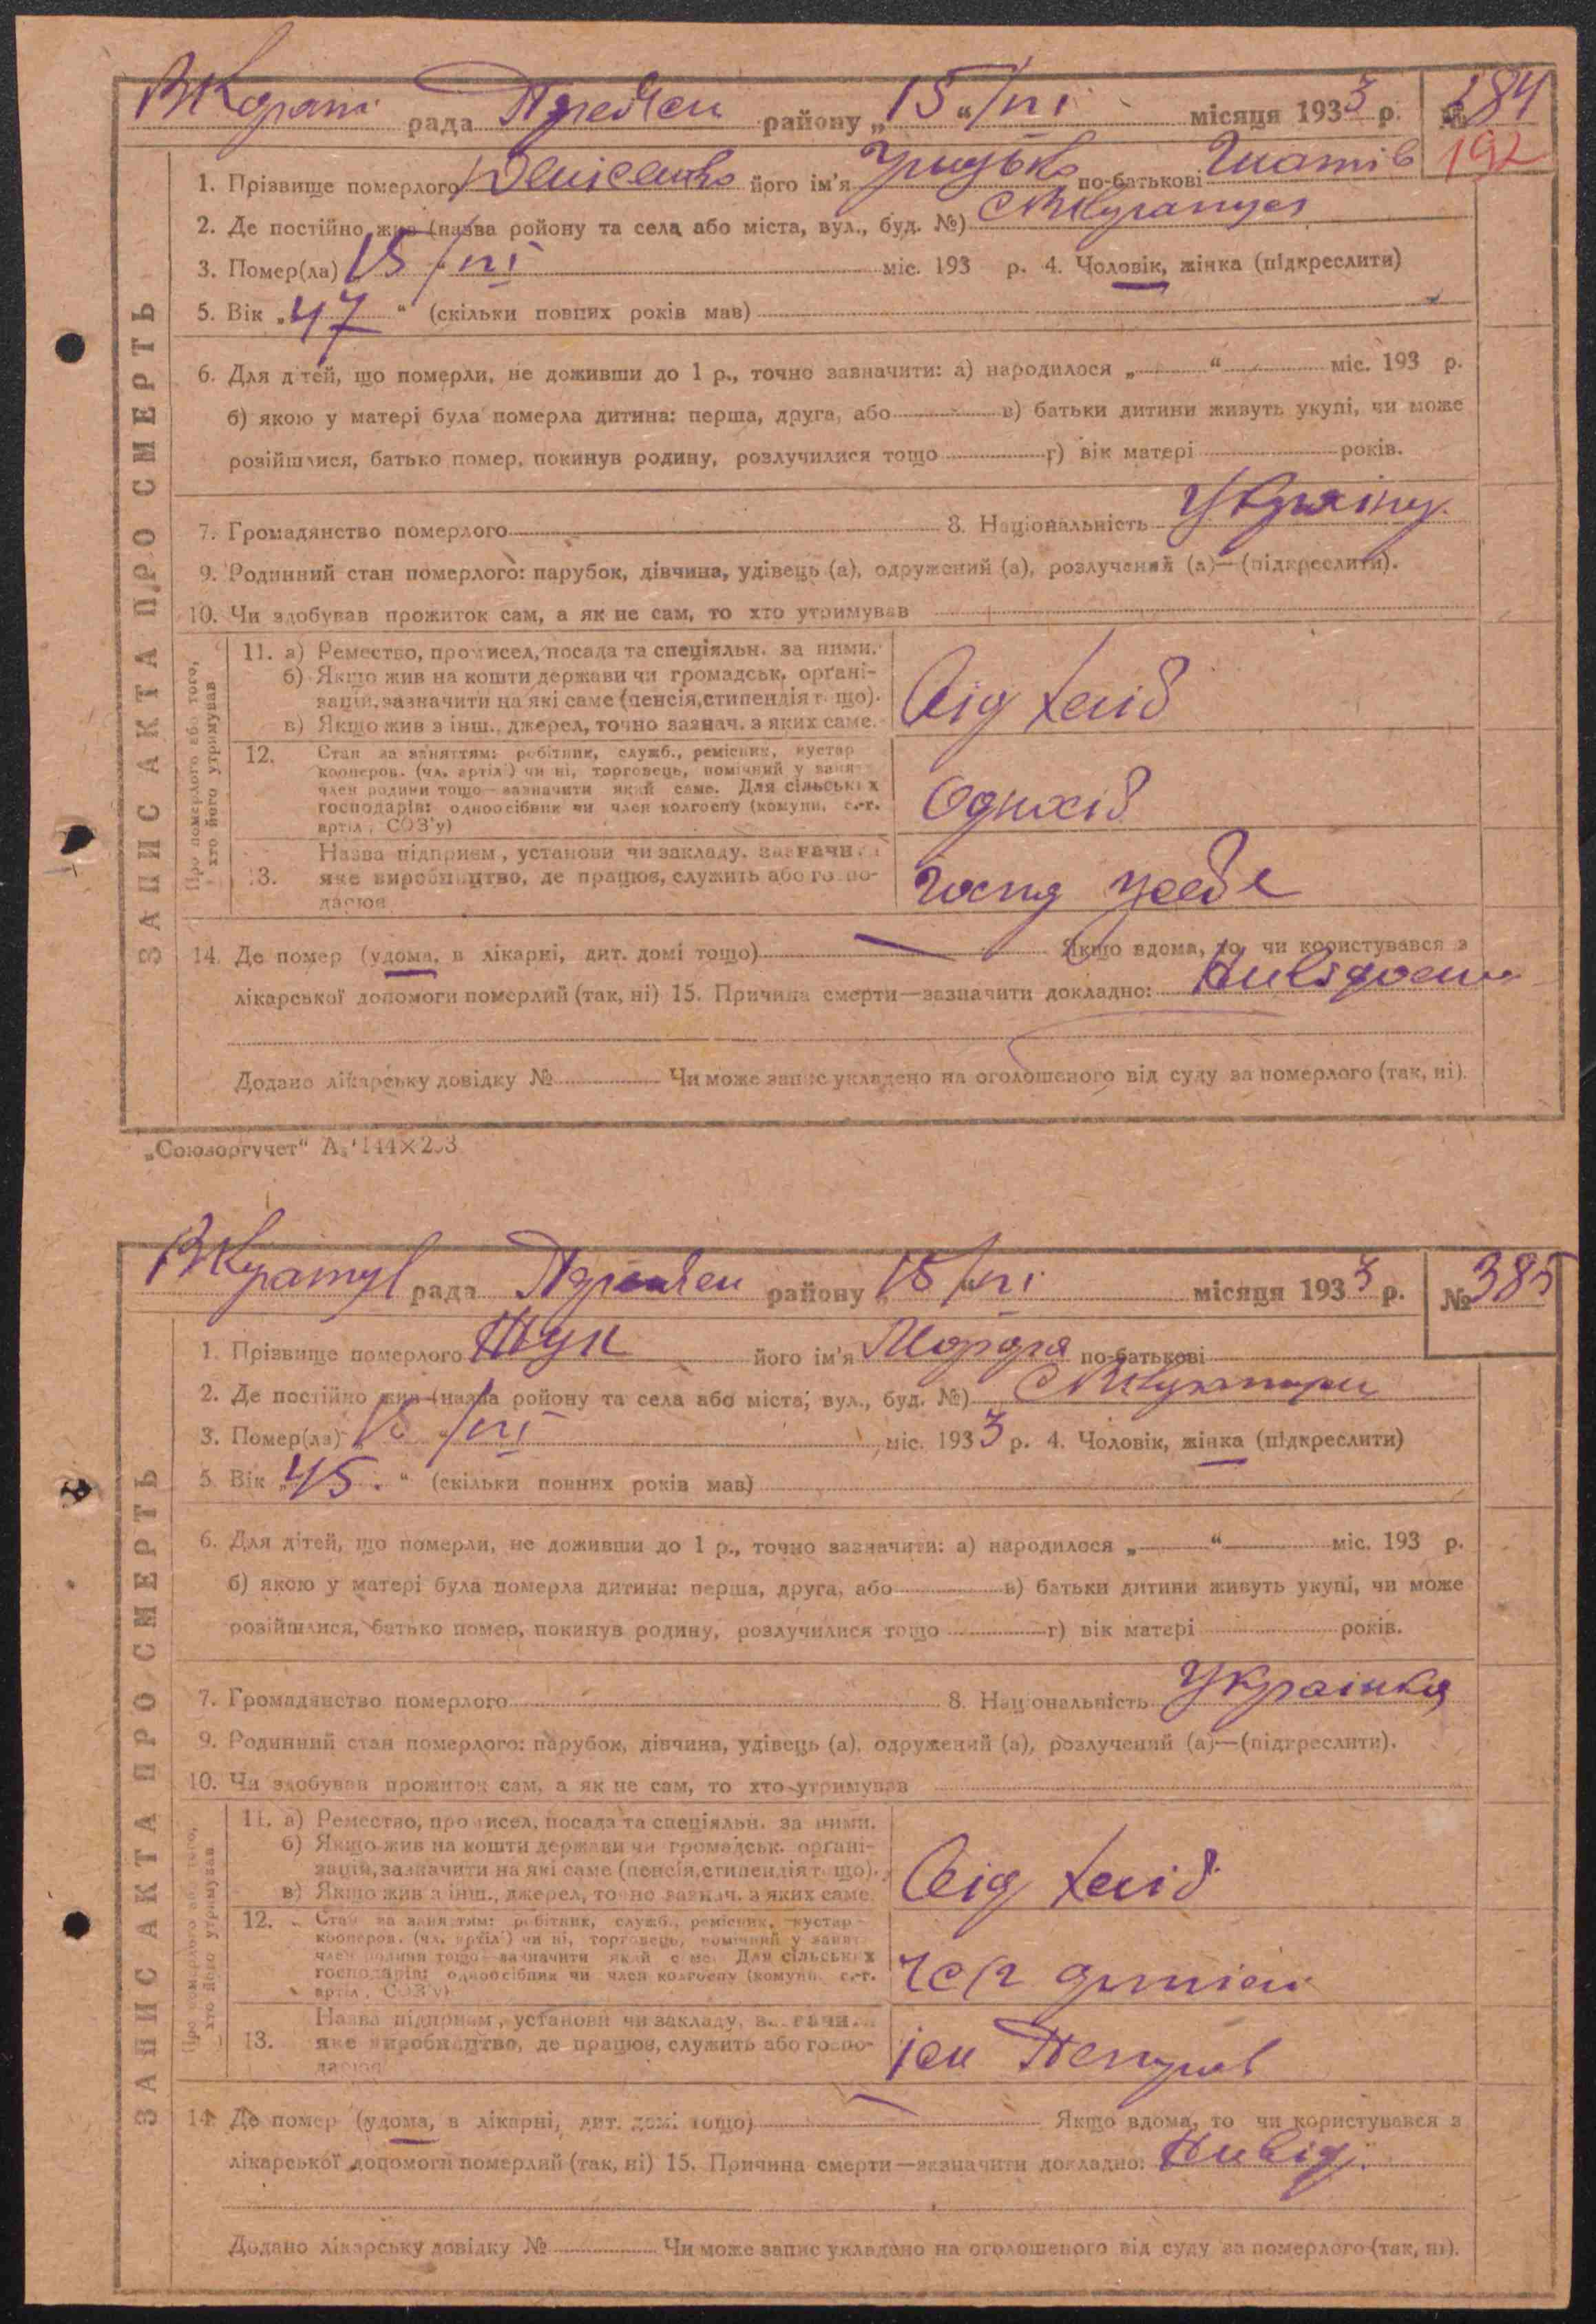 рада району „15“/VI місяця 1933 р. № 184
192
1. Прізвище померлого Денисенко його ім'я Грицько по-батькові Гнатів
2. Де постійно жив (назва ройону та села або міста, вул., буд. №)
3. Помер(ла) 15/VI міс. 193 р. 4. Чоловік, жінка (підкреслити)
5. Вік „47“ (скільки повних років мав)
6. Для дітей, що померли, не доживши до 1 р., точно зазначити: а) народилося „ “ міс. 193 р.
б) якою у матері була померла дитина: перша, друга, або в) батьки дитини живуть укупі, чи може
розійшлися, батько помер, покинув родину, розлучилися тощо г) вік матері років.
7. Громадянство померлого 8. Національність
9. Родинний стан померлого: парубок, дівчина, удівець (а), одружений (а), розлучений (а)—(підкреслити).
10. Чи здобував прожиток сам, а як не сам, то хто утримував
ЗАПИС АКТА ПРО СМЕРТЬ
Про померлого або того,
хто його утримував
11. а) Ремество, промисел, посада та спеціяльн. за ними.
б) Якщо жив на кошти держави чи громадськ. орґані-
зацій, зазначити на які саме (пенсія, стипендія тощо).
в) Якщо жив з інш., джерел, точно зазнач. з яких саме.
12. Стан за заняттям: робітник, служб., ремісник, кустар
кооперов. (чл. артіл.) чи ні, торговець, помічний у занят.
член родини тощо—зазначити який саме. Для сільських
господарів: одноосібник чи член колгоспу (комуни, с.-г.
артіл., СОЗ'у)
13. Назва підприєм., установи чи закладу, зазначи
яке виробництво, де працює, служить або госпо-
дарює
14. Де помер (удома, в лікарні, дит. домі тощо) Якщо вдома, то чи користувався з
лікарської допомоги померлий (так, ні) 15. Причина смерти—зазначити докладно:
Додано лікарську довідку № Чи може запис укладено на оголошеного від суду за померлого (так, ні).
„Союзоргучет“
рада району 15/VI місяця 1933 р. № 385
1. Прізвище померлого його ім'я по-батькові
2. Де постійно жив (назва ройону та села або міста, вул., буд. №)
3. Помер(ла) 15/VI міс. 1933 р. 4. Чоловік, жінка (підкреслити)
5. Вік „45“ (скільки повних років мав)
6. Для дітей, що померли, не доживши до 1 р., точно зазначити: а) народилося „ “ міс. 193 р.
б) якою у матері була померла дитина: перша, друга, або в) батьки дитини живуть укупі, чи може
розійшлися, батько помер, покинув родину, розлучилися тощо г) вік матері років.
7. Громадянство померлого 8. Національність Українка
9. Родинний стан померлого: парубок, дівчина, удівець (а), одружений (а), розлучений (а)—(підкреслити).
10. Чи здобував прожиток сам, а як не сам, то хто утримував
ЗАПИС АКТА ПРО СМЕРТЬ
Про померлого або того,
хто його утримував
11. а) Ремество, промисел, посада та спеціяльн. за ними.
б) Якщо жив на кошти держави чи громадськ. орґані-
зацій, зазначити на які саме (пенсія, стипендія тощо).
в) Якщо жив з інш., джерел, точно зазнач. з яких саме.
12. Стан за заняттям: робітник, служб., ремісник, кустар
кооперов. (чл. артіл.) чи ні, торговець, помічний у занят.
член родини тощо—зазначити який саме. Для сільських
господарів: одноосібник чи член колгоспу (комуни, с.-г.
артіл., СОЗ'у)
13. Назва підприєм., установи чи закладу, зазначи
яке виробництво, де працює, служить або госпо-
дарює
14. Де помер (удома, в лікарні, дит. домі тощо) Якщо вдома, то чи користувався з
лікарської допомоги померлий (так, ні) 15. Причина смерти—зазначити докладно:
Додано лікарську довідку № Чи може запис укладено на оголошеного від суду за померлого (так, ні).